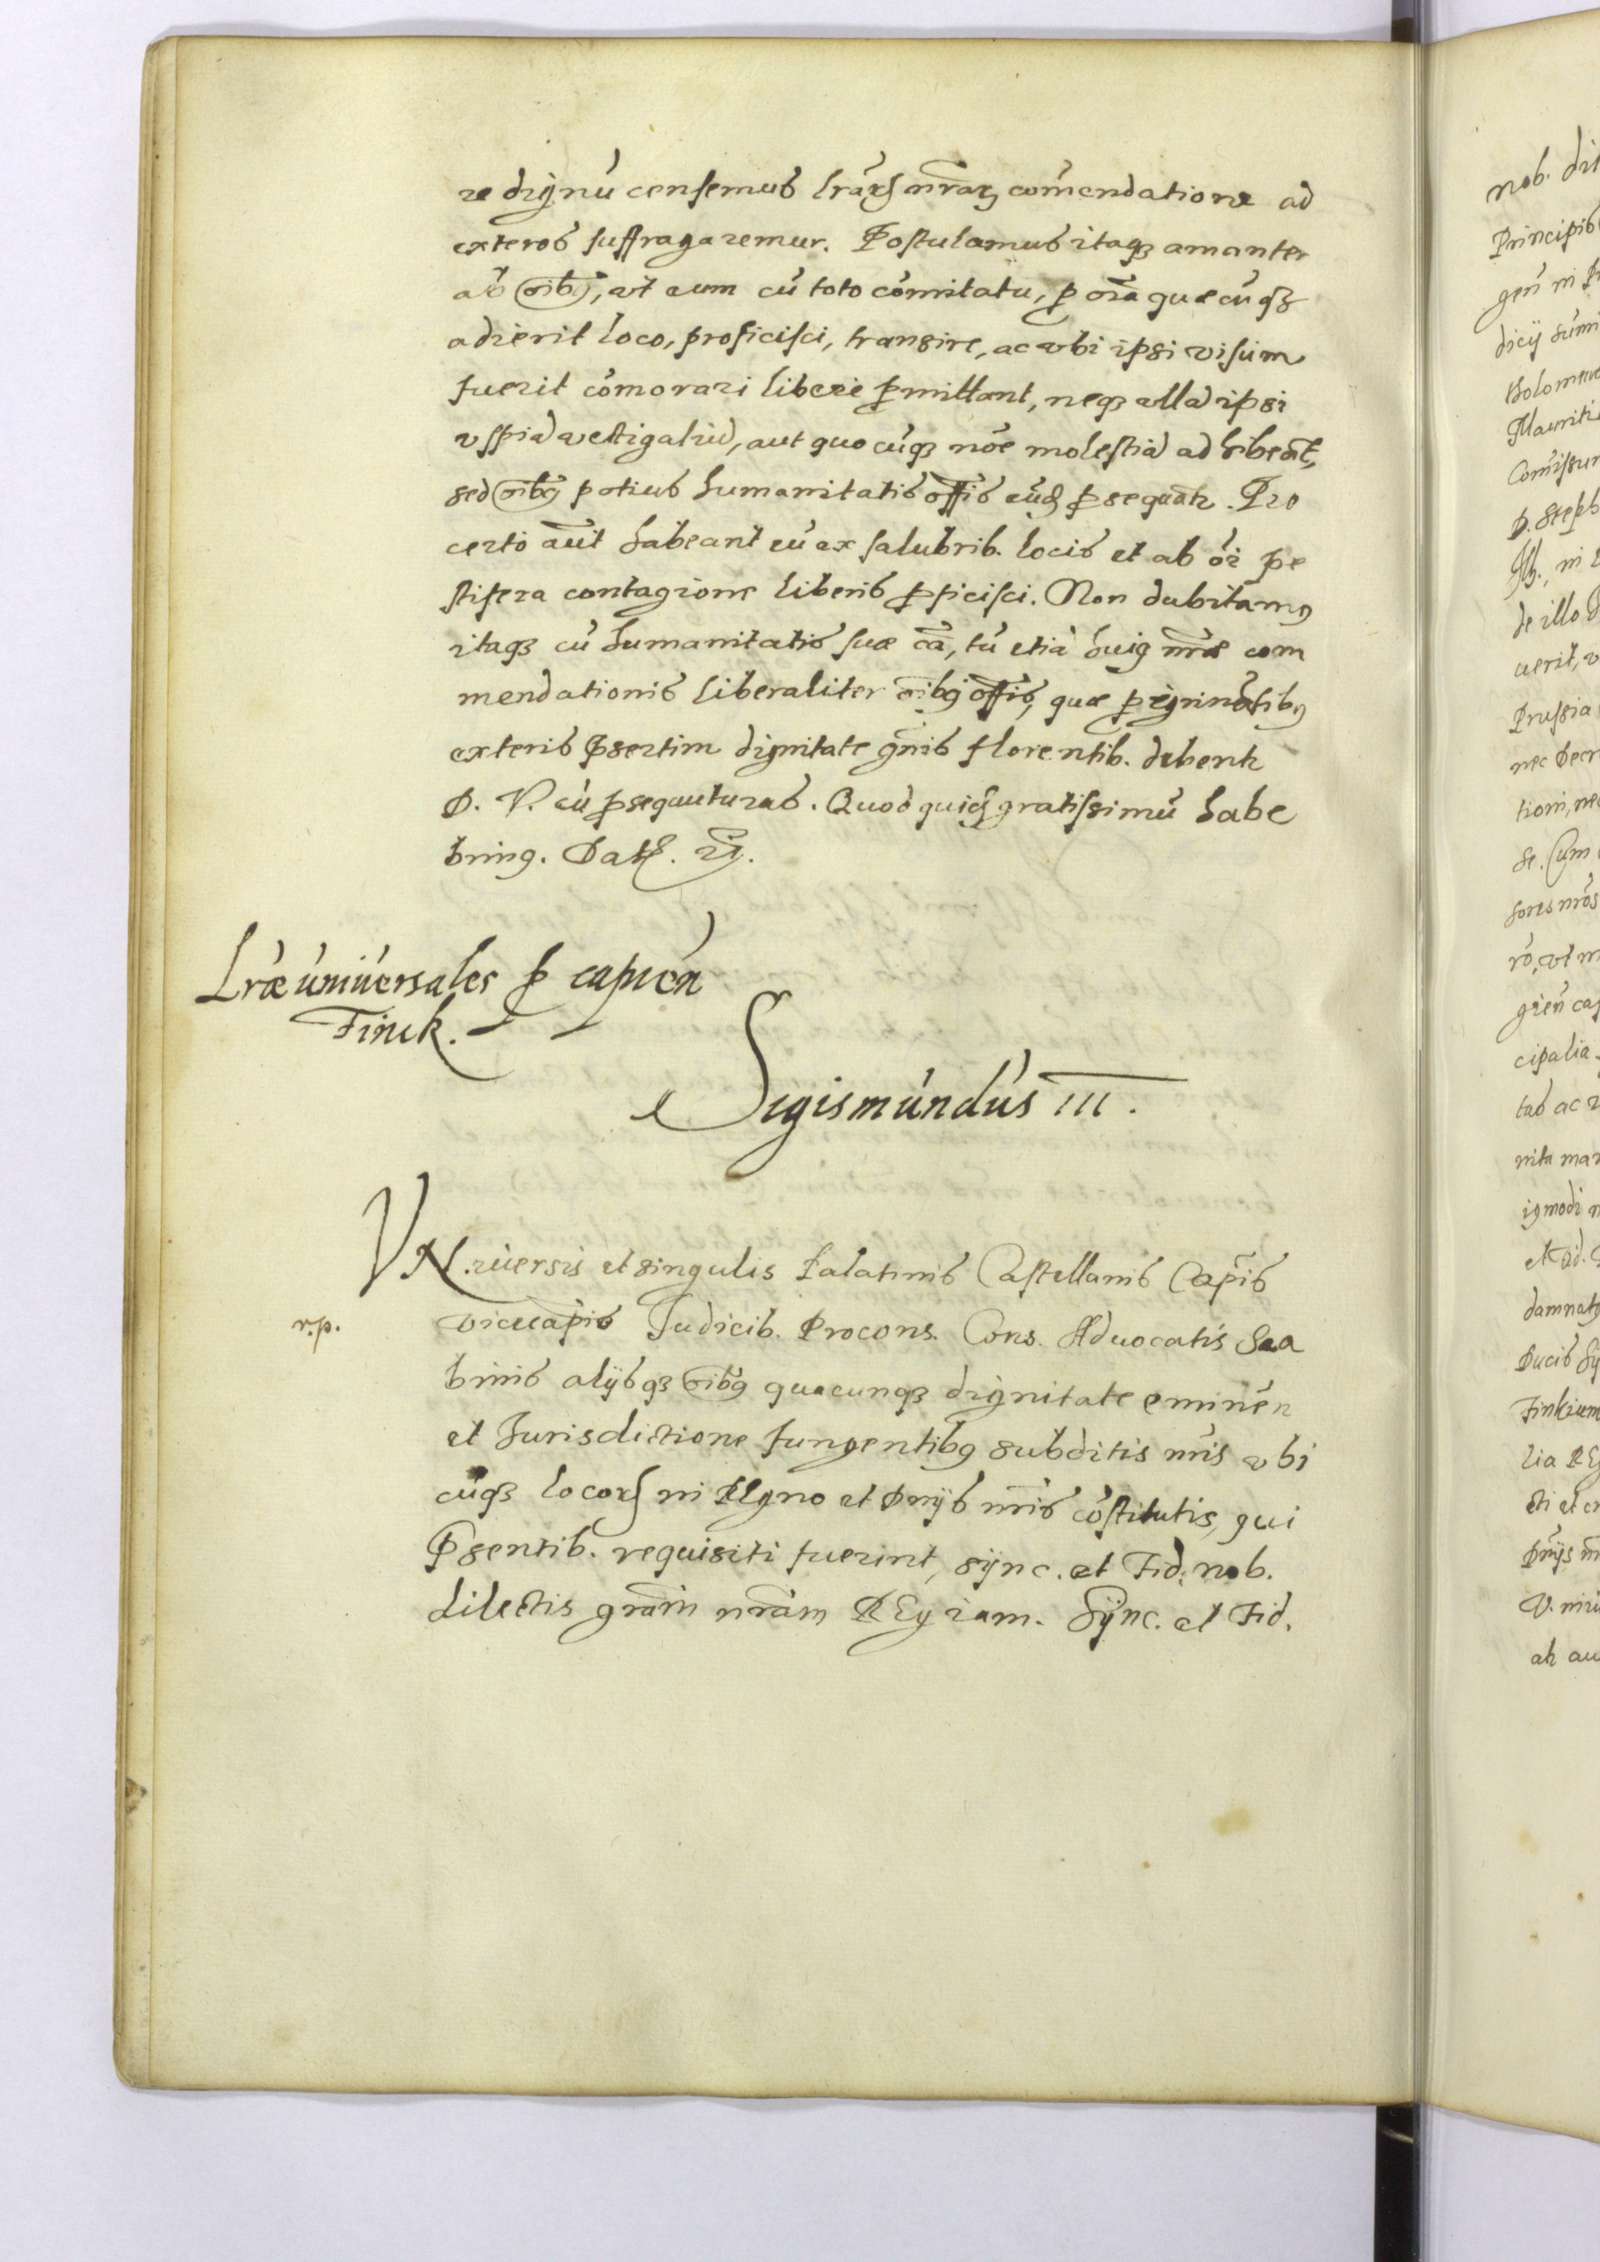 re dignū censemus lrārʒ nrārʒ com̄endatione ad
exteros suffragaremur. Postulamus itaqʒ amanter
ab oībꝰ, vt eum cū toto comitatu, ꝑ oīa quaecūqʒ
adierit loco, proficisci, transire, ac vbi ipsi visum
fuerit com̄orari libere ꝑmittant, neqʒ vllā ipsi
vspiā vectigaliū, aut quocūqʒ noīe molestiā adhibeāt,
sed oībꝰ potius humanitatis offīs eūd ꝓsequātr. Pro
certo aūt habeant eū ex salubrib. locis et ab oī pe
stifera contagione liberis ꝓficisci. Non dubitamꝰ
itaqʒ cū humanitatis suae cā, tū etiā huiꝰ nrāe com
mendationis liberaliter oībꝰ offīs, quae ꝑegrinātibꝰ
exteris p̄sertim dignitate gn̄is florentib. debentr
D. V. eū ꝓsequuturas. Quod quid gratissimū habe
bimꝰ. Dat.
Lrāe universales ꝑ capien̄
Finck.
Sigismundus III.
VNiuersis et singulis Palatinis Castellanis Cap̄is
r.p.
Vicecap̄is Judicib. Procons. Cons. Aduocatis Sca
binis alijsqʒ oībꝰ quacunqʒ dignitate eminen̄
et Jurisdictione fungentibꝰ subditis nr̄is vbi
cūqʒ locorʒ in REgno et Dn̄ijs nr̄is cōstitutis, qui
P̄sentib. requisiti fuerint, sync. et Fid. nob.
dilectis grām nrām REgiam. Sync. et Fid.
nob. dil
Principis
dicij sum̄i
Mauriti
D. Steph
de illo
uerit, v
Prussia
nec Decr
tioni, ne
se. Cum
sores nrōs
rō, vt m
cipalia
tas ac v
nita man
et ad.
damnatꝰ
Ducis
Finkium
lia REg
cti et
Dn̄ijs nr̄